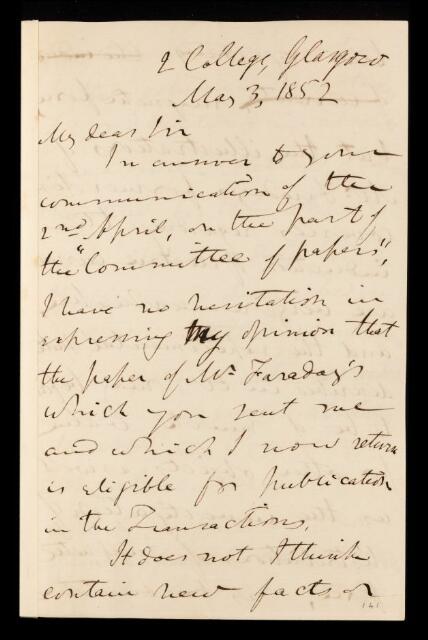 2 College, Glasgow
May 3, 1852
My dear Sir
In answer to your
communication of the
2nd April, on the part of
the "Committee of papers",
I have no hesitation in
expressing my opinion that
the paper of Mr Faraday's
which you sent me
and which I now return
is eligible for publication
in the Transactions.
It does not I think
contain new facts or
141